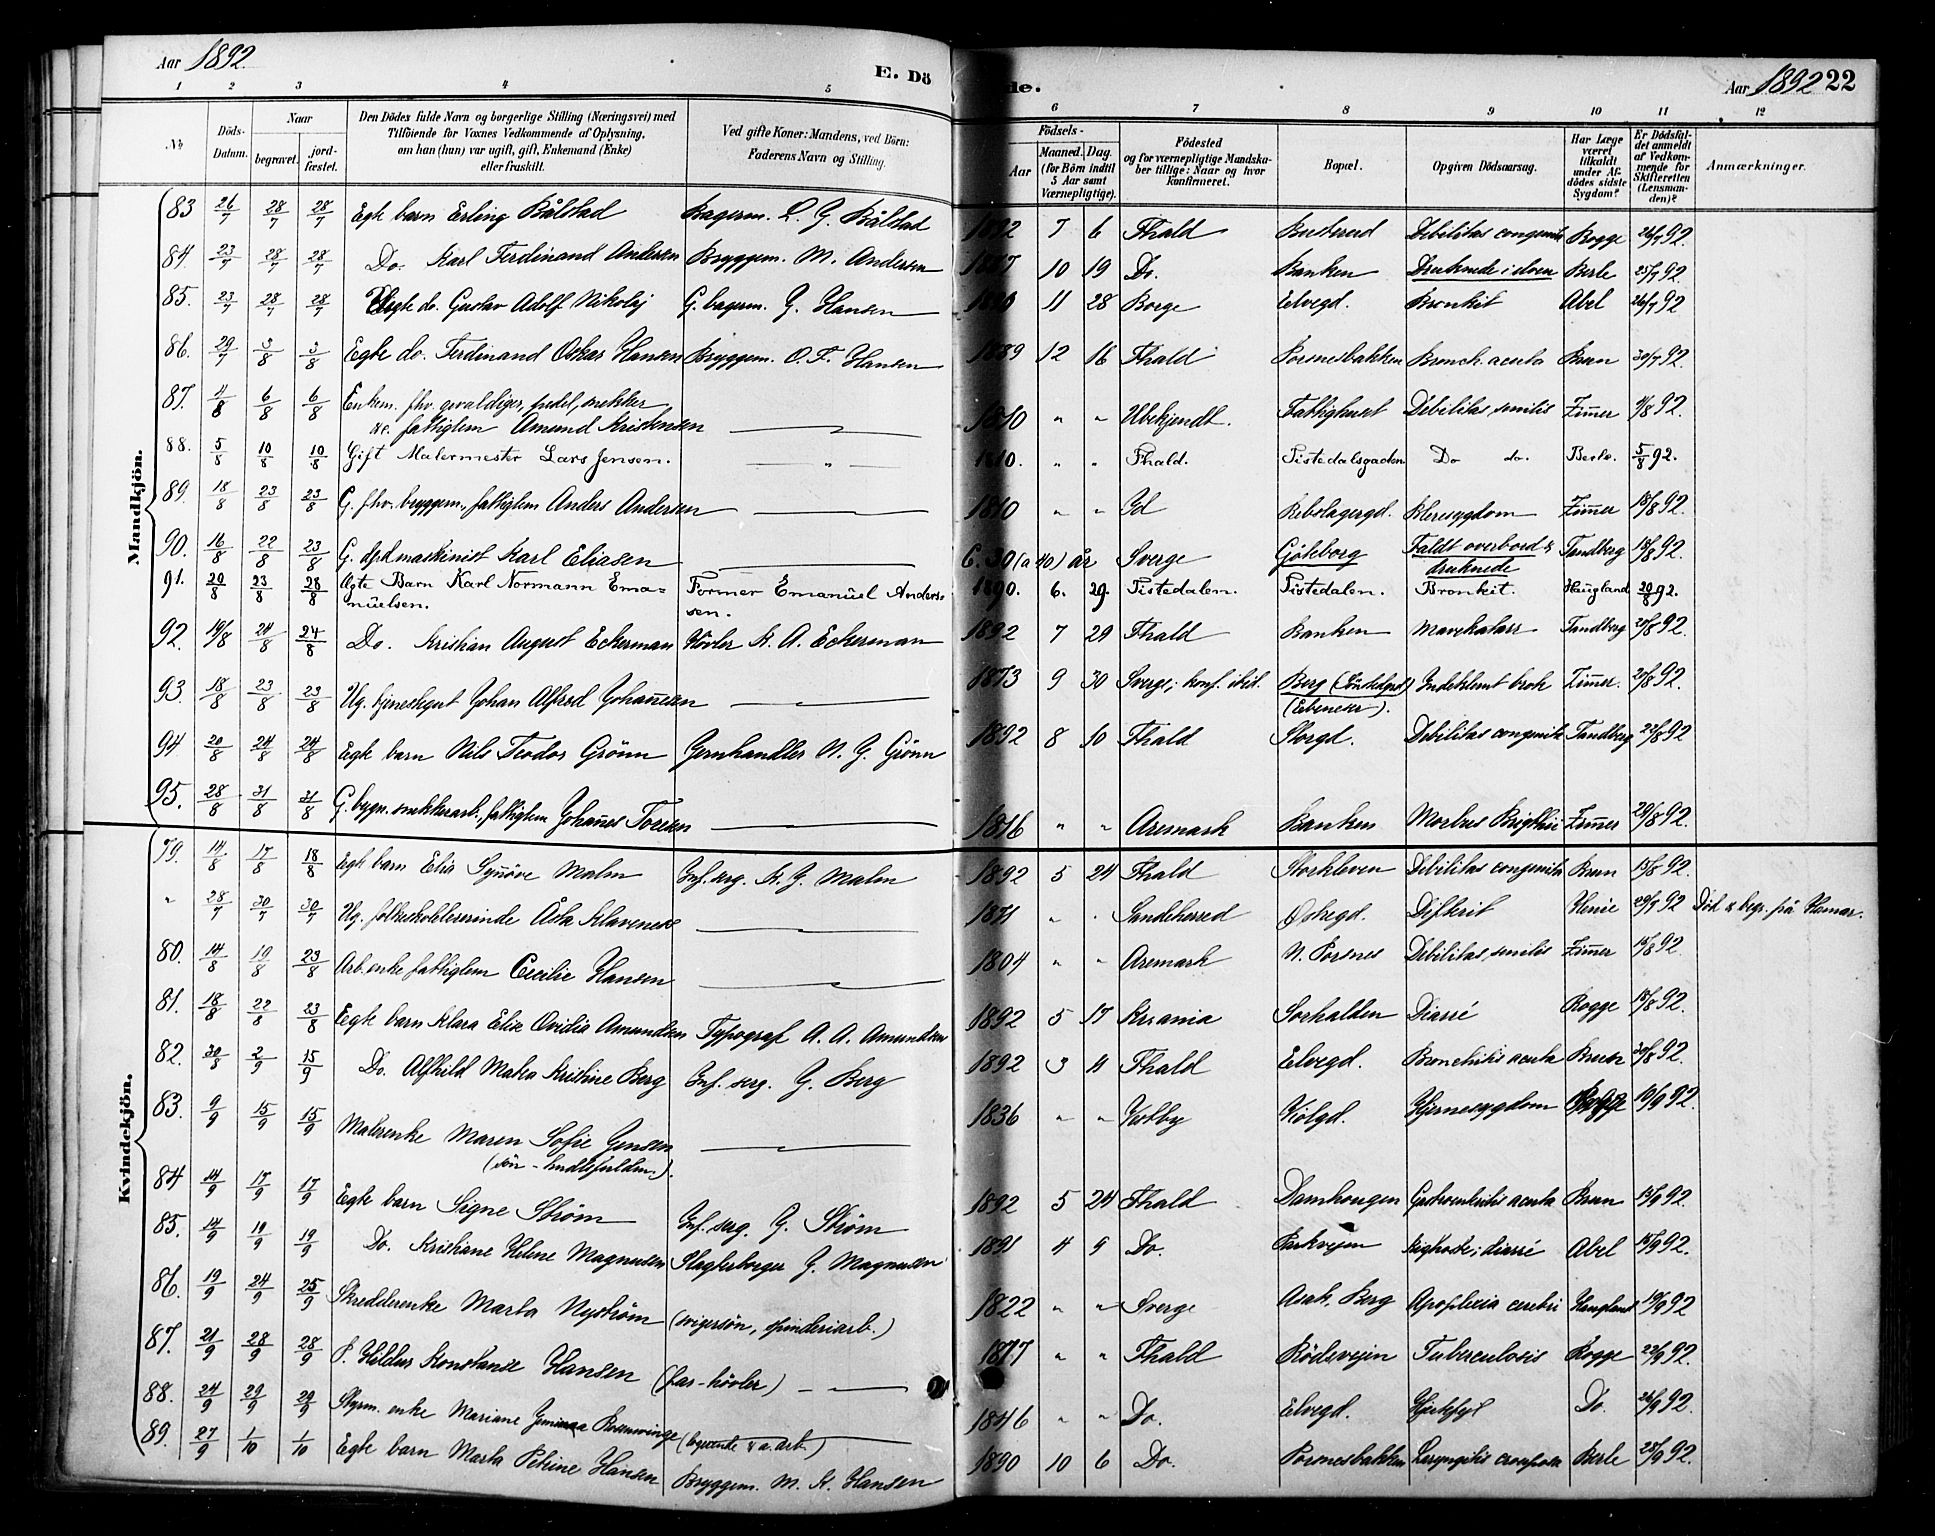 Aar 1892.
E. Dö
de.
Aar 1892 22
1 2 3 4 5 6 7 8 9 10 11 12
No
Döds-Datum.
Naar
begravet.
jord-fæstet.
Den Dödes fulde Navn og borgerlige Stilling (Næringsvei) med
Tilföiende for Voxnes Vedkommende af Oplysning,
om han (hun) var ugift, gift, Enkemand (Enke)
eller fraskilt.
Ved gifte Koner: Mandens, ved Börn:
Faderens Navn og Stilling.
Födsels-
Aar
Maaned. Dag.
(for Börn indtil
5 Aar samt
Værnepligtige).
Födested
og for værnepligtige Mandska-
ber tillige: Naar og hvor
konfirmeret.
Bopæl.
Opgiven Dödsaarsag.
Har Læge
været
tilkaldt
under Af-
dödes sidste
Sygdom?
Er Dödsfal-
det anmeldt
af Vedkom-
mende for
Skifteretten
(Lensman-
den)?
Anmærkninger.
Mandkjön.
83 26/7 28/7 28/7 Egte barn Erling Bålstad Bagerm. L. G. Bålstad 1892 7 6 Fhald Debilitas congenita Rogge 26/7 92.
84. 23/7 28/7 28/7 Do. Karl Ferdinand Andersen Bryggem. M. Andersen 10 19 Do. Banken Druknede i elven Berle 25/7 92
85. 23/7 28/7 28/7 Uegte do. Gustav Adolf Nikolaj G. bagerm. G. Hansen 11 28 Borge Elvegd. Bronkit Abel 26/7 92
86. 29/7 3/8 3/8 Egte do. Ferdinand Oskar Hansen Bryggem. O. F. Hansen 1889 12 16 Fhald Porsnesbakken Bronch. acuta Brun 30/7 92
87. 4/8 6/8 6/8 Enkem. fhv. gevaldiger, snekker
&c. fattiglem Amund Kristensen 1810 " " Ubekjendt. Fattighuset Debilitas senilis Zimer /8 92.
88. 5/8 10/8 10/8 Gift Malermester Lars Jensen. 1810. " " Fhald. Tistedalsgaden Do do. Berle. 5/8 92.
89. 18/8 23/8 23/8 G. fhv. bryggem., fattiglem Anders Andersen 1810 " " Id Rebslagergd. Nyresygdom Zimer 18/8 92.
90. 16/8 22/8 23/8 G. maskinist Karl Eliasen C. 30 (a 40) år Sverge Göteborg Faldt overbord &
druknede Tandberg 18/8 92.
91. 20/8 23/8 28/8 Agte Barn Karl Normann Ema-
nüelsen. Former Emanüel Anders-
sen. 1890. 6. 29. Tistedalen. Tistedalen. Bronkit. Haugland 20/8 92.
92. 19/8 24/8 24/8 Do. Kristian August Eckerman Hövler K. A. Eckerman 1892 7 29 Fhald Banken Mavekatarr Tandberg 20/8 92.
93. 18/8 23/8 23/8 Ug. tjenestegut Johan Alfred Johannesen 1873 9 30 Sverge; konf. Berg
(Ebeneser). Indeklemt brok Zimer. 20/8 92.
94 20/8 24/8 24/8 Egte barn Nils Teodor Grönn Jernhandler N. G. Grönn 1892 8 10 Fhald Storgd. Debilitas congenita Tandberg 22/8 92
95. 28/8 31/8 31/8 G. bygn. snekkerarb., fattiglem Johannes Toresen 1816 " " Aremark Banken Morbus Brightii Zimer 29/8 92.
Kvindekjön.
79. 14/8 17/8 18/8 Egte barn Elsa Synnöve Malm Inf. serg. K. G. Malm 1892 5 24 Fhald Storkleven Debilitas congenita Brun 15/8 92.
" 28/7 30/7 30/7 Ug. folkeskolelærerinde Åsta Klavenes 1871 " " Sandeherred Ostregd. Difterit Henie 29/7 92 Död & begr. på Hamar.
80. 14/8 19/8 23/8 Arb. enke fattiglem Cecilie Hansen 1804 " " Aremark N. Porsnes Debilitas, senilis Zimer 15/8 92.
81. 18/8 22/8 23/8 Egte barn Klara Elise Ovidia Amundsen Typograf A. A. Amundsen 1892 5 17 Kr.ania Sörhalden Diarré Rogge 18/8 92.
82. 30/8 2/9 15/9 Do. Alfhild Maka Kristine Berg Inf. serg. G. Berg 1892 3 11 Fhald Elvegd. Bronchitis acuta Brun 30/8 92.
83. 9/9 15/9 15/9 Malerenke Maren Sofie Jensen
(sön - ) 1836 " " Vestby Kölgd. Hjernesygdom Rogge 10/9 92.
84 14/9 17/9 17/9 Egte barn Signe Ström Inf. serg. G. Ström 1892 5 24 Fhald Damhougen Gastroenteritis acuta Brun 15/9 92.
85. 14/9 19/9 19/9 Do. Kristiane Helene Magnusen Slagterborger G. Magnusen 1891 4 9 Do. Parkvejen Kighoste; diarré Abel 15/9 92.
86. 19/9 24/9 25/9 Skredderenke Marta Nyström (svigersön, spinderiarb.) 1822 " " Sverge Berg Apoplexia cerebri Haugland 19/9 92
87. 21/9 28/9 28/9 P. Hildur Konstanse Hansen (far - hövler) 1877 " " Fhald Rödsvejen Tuberculosis Rogge 22/9 92.
88. 24/9 29/9 29/9 Styrm. enke Mariane Rosenvinge 1846 " " Do. Elvegd. Hjertefejl Do. 26/9 92.
89. 27/9 1/10 1/10 Egte barn Marta Petrine Hansen Bryggem. M. K. Hansen 1890 10 6 Do. Porsnesbakken Laryngitis crouposa Berle 28/9 92.